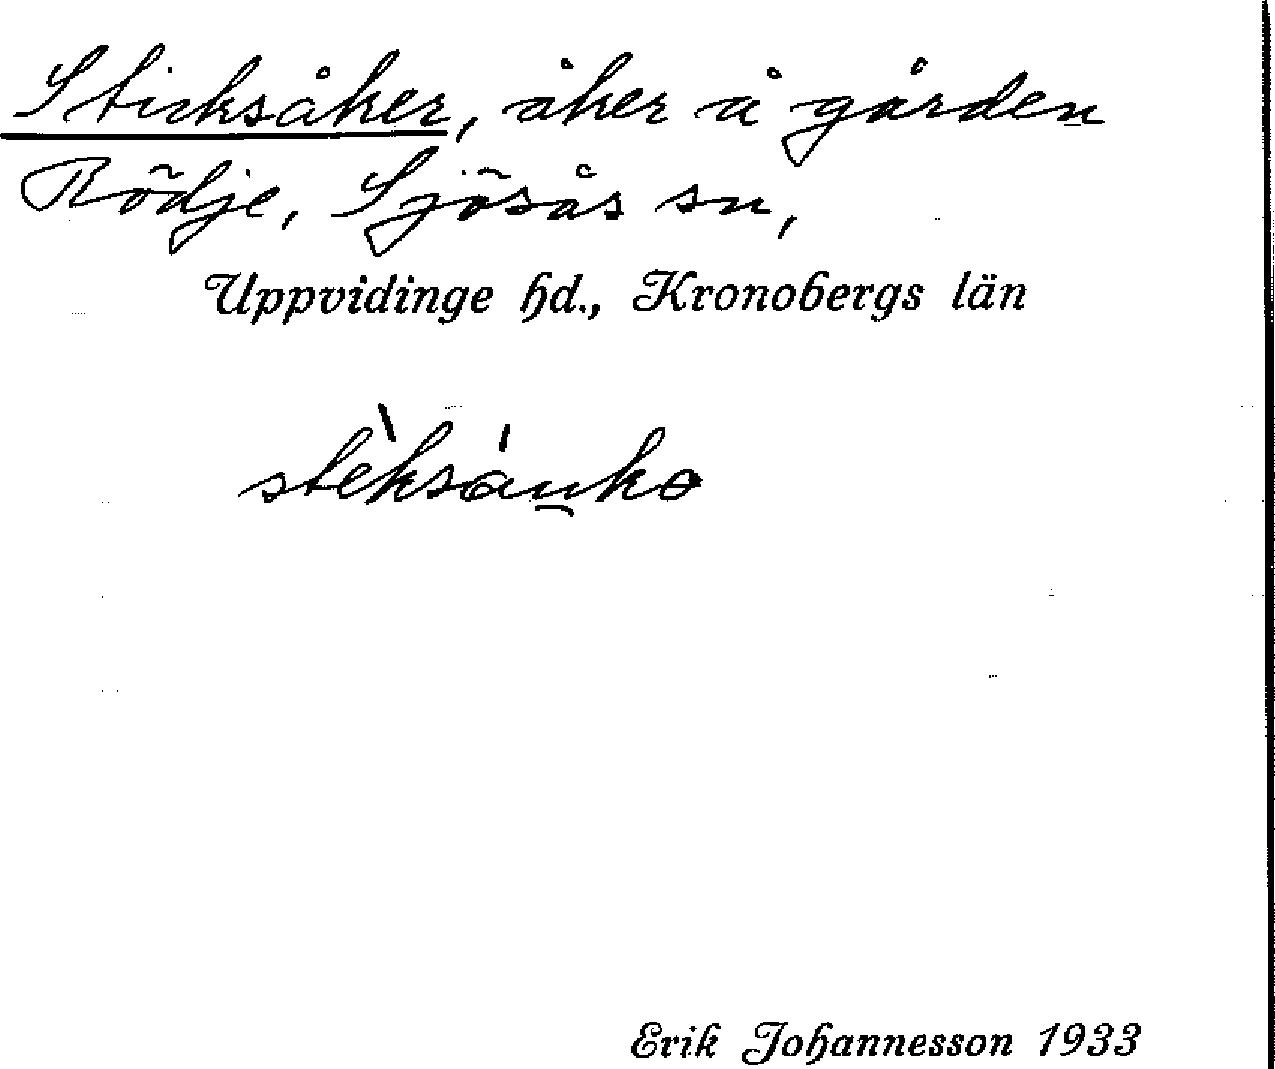 Sticksåker, åker å gården
Rödje, Sjösås sn,
Uppvidinge hd., Kronobergs län
Erik Johannesson 1933